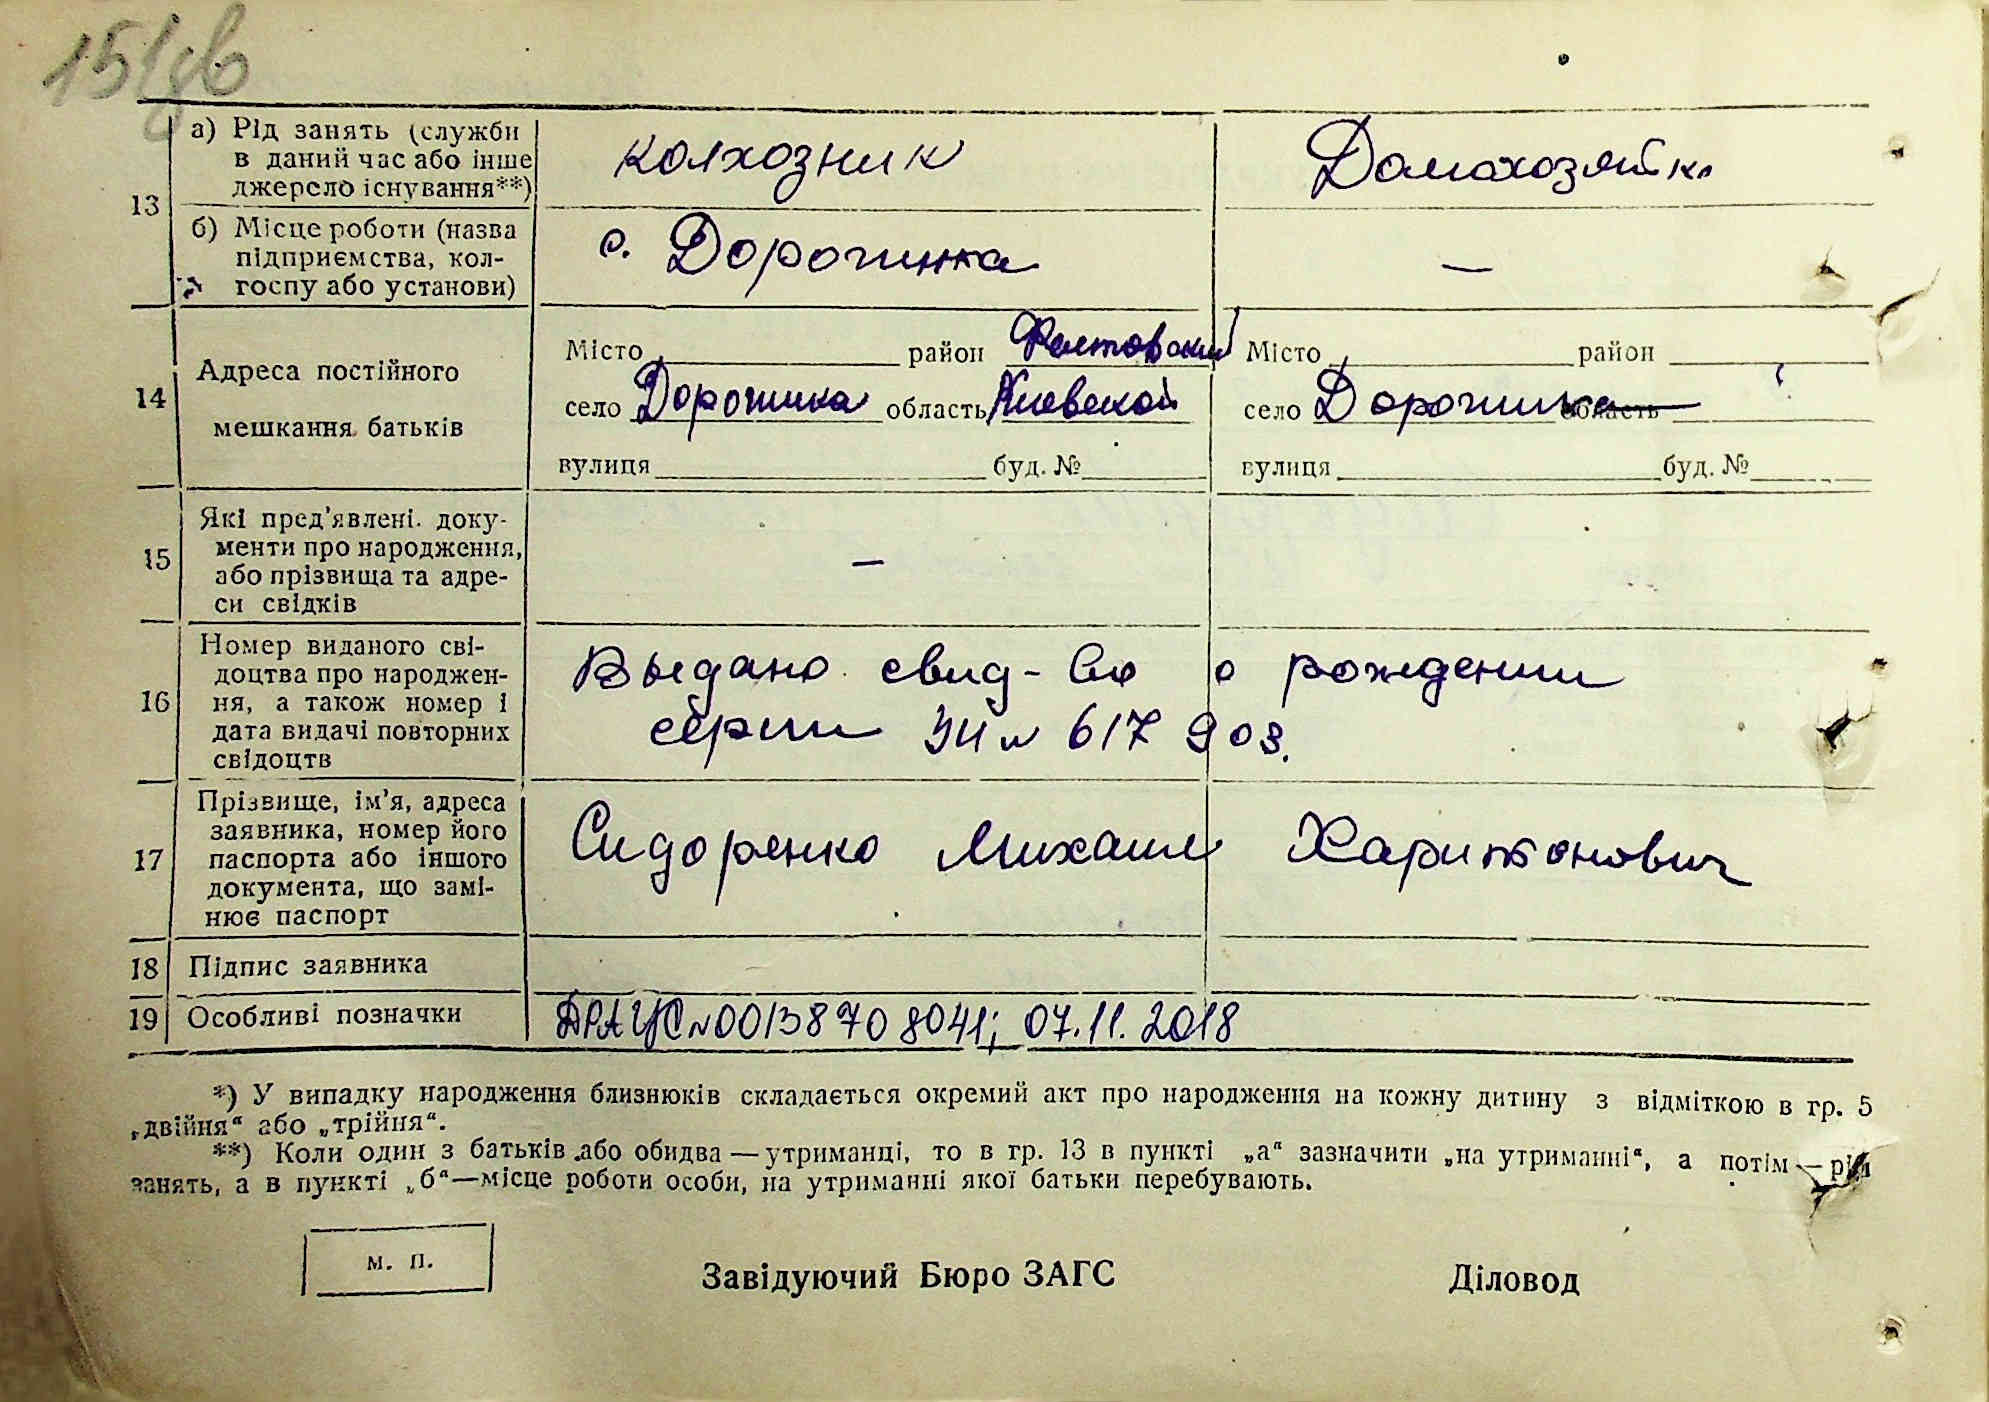 а) Рід занять (служби в даний час або інше джерело існування**)
колхозник
Домохозяйка
13
б) Місце роботи (назва підприємства, колгоспу або установи)
с. Дорогинка
—
14
Адреса постійного мешкання батьків
Місто район Фастовский
село Дорогинка область Киевской
вулиця буд. №
Місто район
село Дорогинка область
вулиця буд. №
15
Які пред'явлені документи про народження, або прізвища та адреси свідків
—
16
Номер виданого свідоцтва про народження, а також номер і дата видачі повторних свідоцтв
Выдано свид-во о рождении
серии № 617903.
17
Прізвище, ім'я, адреса заявника, номер його паспорта або іншого документа, що замінює паспорт
Сидоренко Михаил Харитонович
18 Підпис заявника
19 Особливі позначки
ДРАЦС №00138708041; 07.11.2018
*) У випадку народження близнюків складається окремий акт про народження на кожну дитину з відміткою в гр. 5
„двійня“ або „трійня“.
**) Коли один з батьків або обидва — утриманці, то в гр. 13 в пункті „а“ зазначити „на утриманні“, а потім — рід
занять, а в пункті „б“—місце роботи особи, на утриманні якої батьки перебувають.
М. П.
Завідуючий Бюро ЗАГС
Діловод